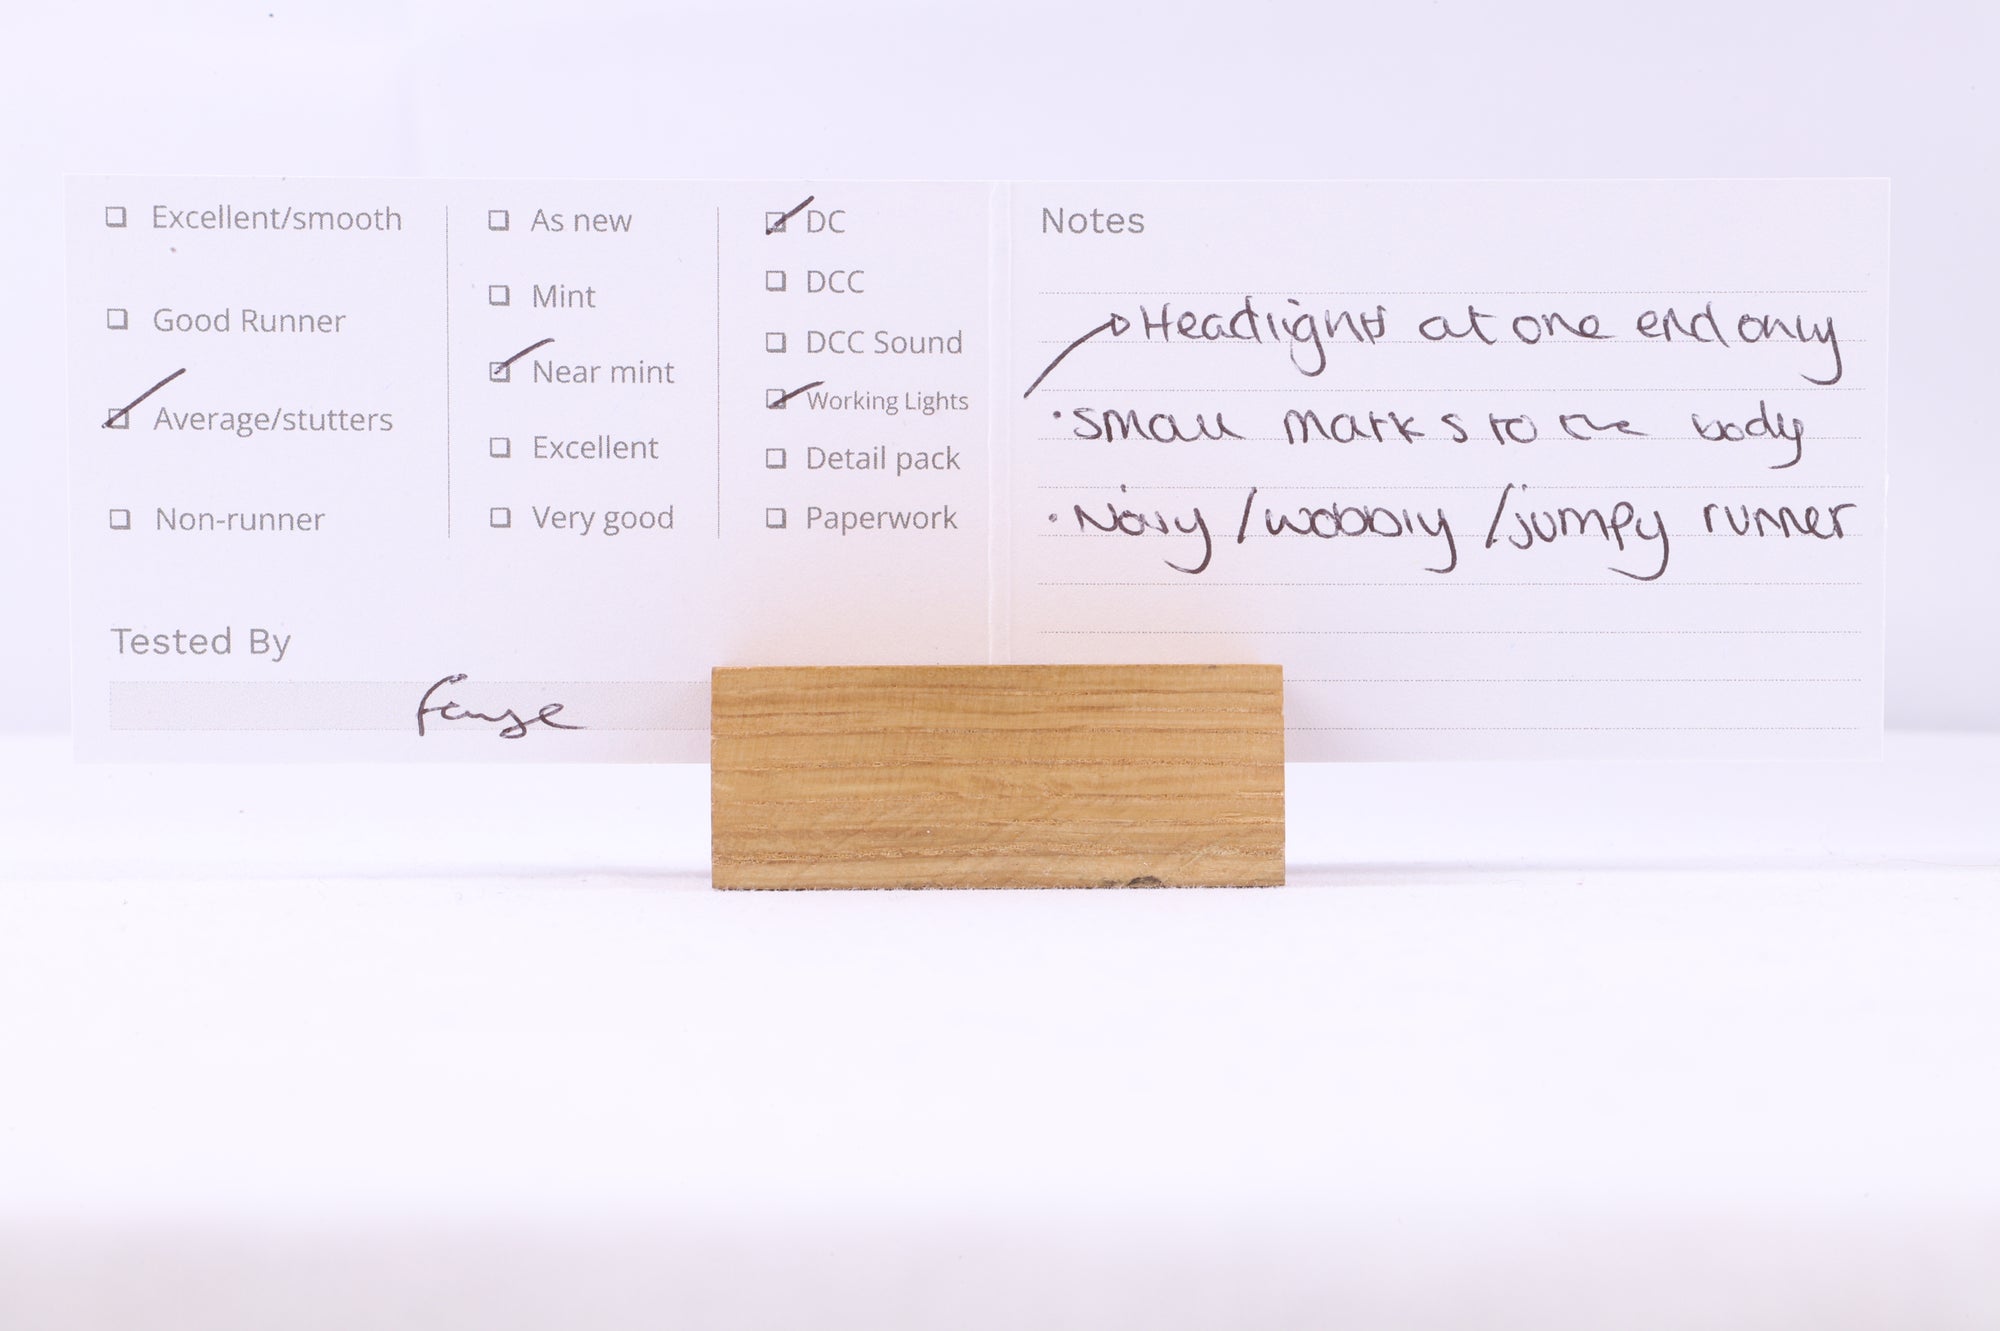 Excellent/smooth
Good Runner
Average/stutters
Non-runner
As new
Mint
Near mint
Excellent
Very good
DC
DCC
DCC Sound
Working Lights
Detail pack
Paperwork
Tested By
Notes
Headlights at one end only
• small marks to the body
• Noisy / wobbly / jumpy runner